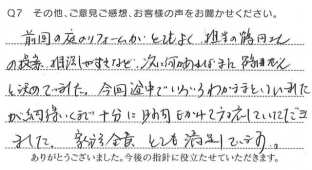 Q7 その他、ご意見ご感想、お客様の声をお聞かせください。
前回の庭のリフォームがとてもよく、担当の鶴田さん
の提案、相談しやすさなど、次に何かあればまた鶴田さん
と決めていました。今回途中でいろいろわがままといいました
が納得いくまで十分に時間をかけて対応していただき
ました。家族全員とても満足しています。
ありがとうございました。今後の指針に役立たせていただきます。